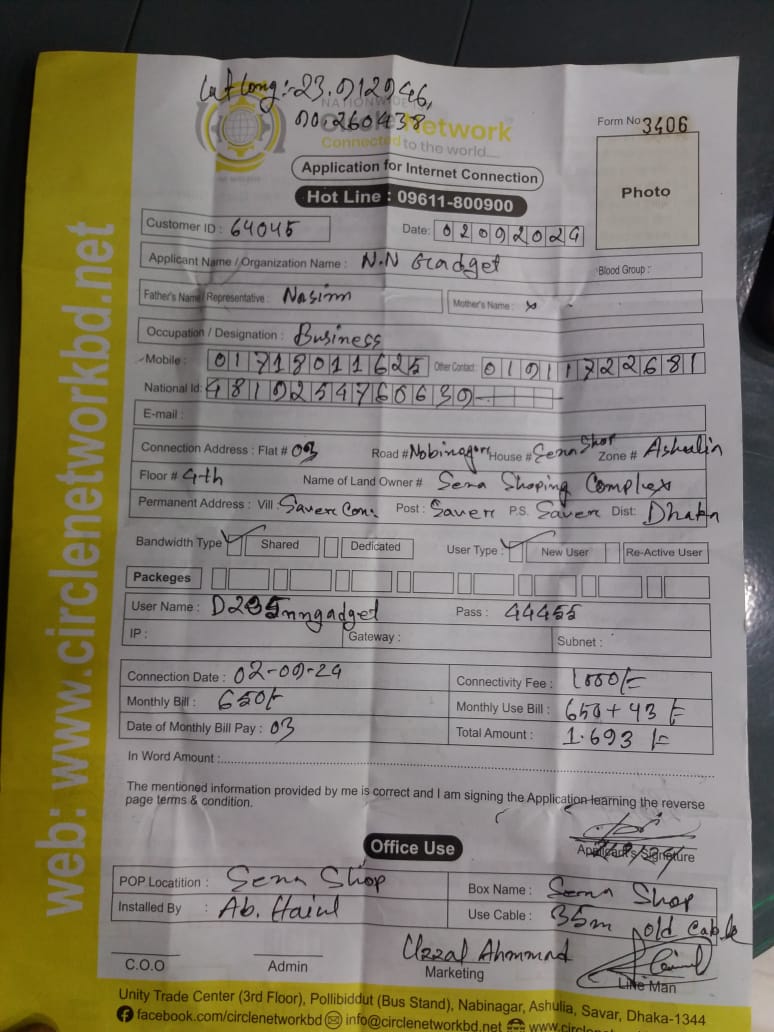 Lat Long:-23.912946,
90.260438
NATIONWIDE
Circle Network
Connected to the world....
Form No 3406
Application for Internet Connection
Photo
Hot Line : 09611-800900
Customer ID : 64045
Date: 02092024
Applicant Name / Organization Name : N.N Gadget
Blood Group :
Father's Name / Representative : Nasim
Mother's Name : x
Occupation / Designation : Business
Mobile : 01718011625 Other Contact : 01911722681
National Id: 4819254760639
E-mail :
Connection Address : Flat # 03 Road # Nobinagor House # Sena Shop Zone # Ashulia
Floor # 4th Name of Land Owner # Sena Shoping Complex
Permanent Address : Vill : Saver Can. Post : Saver P.S. Saver Dist: Dhaka
Bandwidth Type ✓ Shared Dedicated User Type : ✓ New User Re-Active User
Packeges
User Name : D295nngadget Pass : 44455
IP : Gateway : Subnet :
Connection Date : 02-09-24 Connectivity Fee : 1000/-
Monthly Bill : 650/- Monthly Use Bill : 650+43/-
Date of Monthly Bill Pay : 03 Total Amount : 1.693/-
In Word Amount :
The mentioned information provided by me is correct and I am signing the Application learning the reverse
page terms & condition.
Applicant's Signature
Office Use
POP Locatition : Sena Shop Box Name : Sena Shop
Installed By : Ab. Haiul Use Cable : 35m old Cable
Uzzal Ahmmad
C.O.O Admin Marketing Line Man
Unity Trade Center (3rd Floor), Pollibiddut (Bus Stand), Nabinagar, Ashulia, Savar, Dhaka-1344
facebook.com/circlenetworkbd info@circlenetworkbd.net
web: www.circlenetworkbd.net